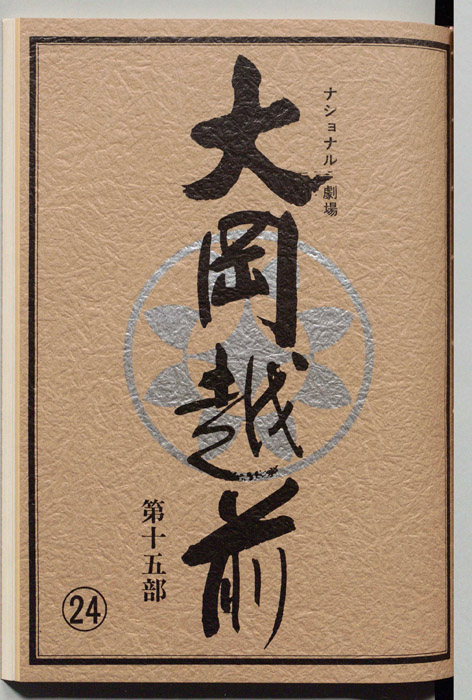 ナショナル劇場
大岡越前
第十五部
24